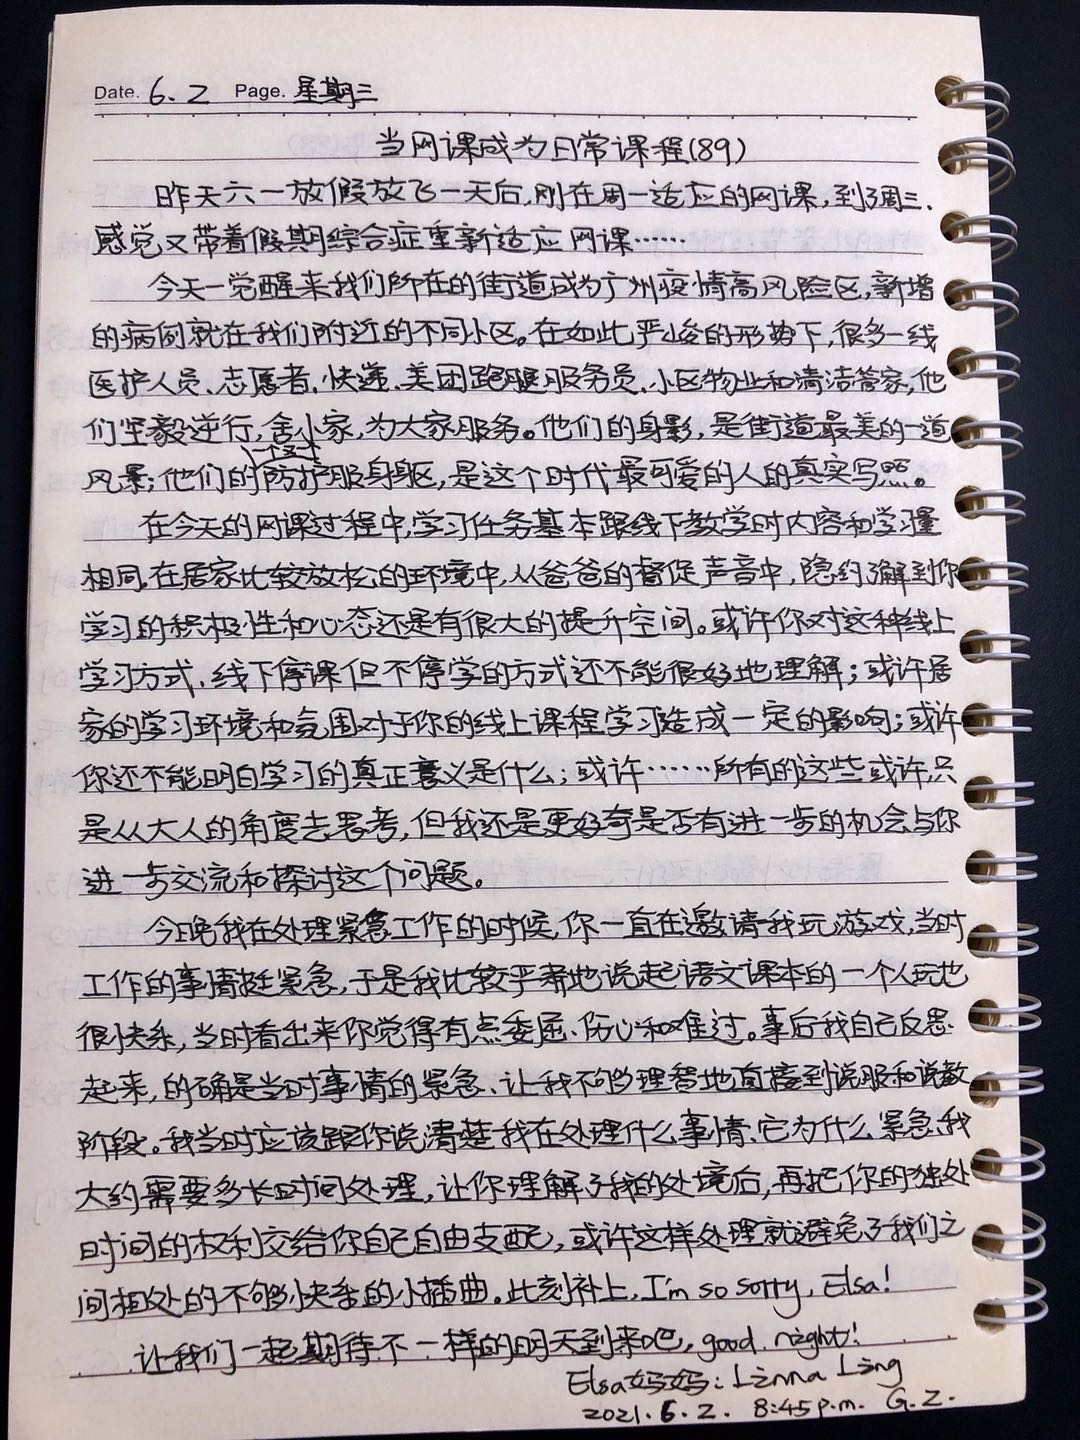 Date. 6.2 Page. 星期三
当网课成为日常课程(89)
昨天六一放假放飞一天后,刚在周一适应的网课,到了周三,
感觉又带着假期综合症重新适应网课……
今天一觉醒来我们所在的街道成为广州疫情高风险区,新增
的病例就在我们附近的不同小区。在如此严峻的形势下,很多一线
医护人员、志愿者、快递、美团跑腿服务员、小区物业和清洁管家,他
们坚毅逆行,舍小家,为大家服务。他们的身影,是街道最美的一道
一个又一个
风景;他们的防护服身躯,是这个时代最可爱的人的真实写照。
在今天的网课过程中,学习任务基本跟线下教学时内容和学习量
相同,在居家比较放松的环境中,从爸爸的督促声音中,隐约了解到你
学习的积极性和心态还是有很大的提升空间。或许你对这种线上
学习方式,线下停课但不停学的方式还不能很好地理解;或许居
家的学习环境和氛围对于你的线上课程学习造成一定的影响;或许
你还不能明白学习的真正意义是什么;或许……所有的这些或许,只
是从大人的角度去思考,但我还是更好奇是否有进一步的机会与你
进一步交流和探讨这个问题。
今晚我在处理紧急工作的时候,你一直在邀请我玩游戏,当时
工作的事情挺紧急,于是我比较严肃地说起语文课本的一个人玩也
很快乐,当时看出来你觉得有点委屈、伤心和难过。事后我自己反思
起来,的确是当时事情的紧急、让我不够理智地直接到说服和说教
阶段。我当时应该跟你说清楚我在处理什么事情、它为什么紧急、我
大约需要多长时间处理,让你理解了我的处境后,再把你的独处
时间的权利交给你自己自由支配,或许这样处理就避免了我们之
间相处的不够快乐的小插曲。此刻补上,I'm so sorry, Elsa!
让我们一起期待不一样的明天到来吧,good night!
Elsa妈妈:Linna Ling
2021.6.2. 8:45 p.m. G.Z.